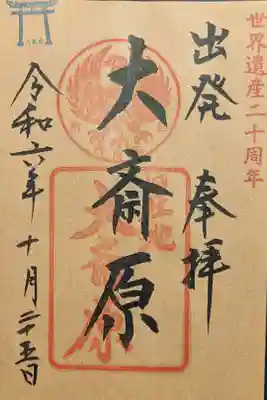 世界遺産二十周年
出発 奉拝
大斎原
令和六年 十月 二十五日